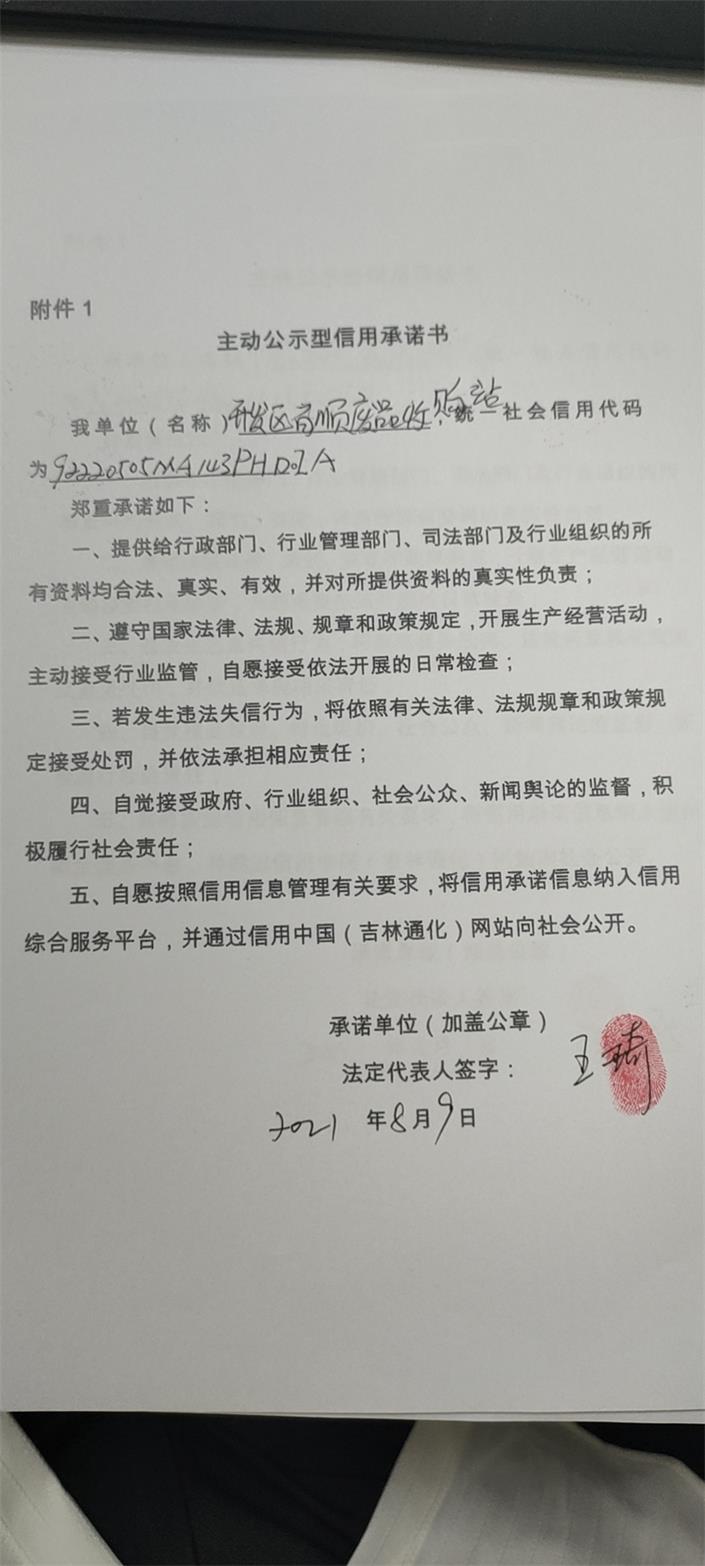 附件1
主动公示型信用承诺书
我单位（名称）开发区高顺废品收购站，统一社会信用代码
为92220505MA143PHD0A
郑重承诺如下：
一、提供给行政部门、行业管理部门、司法部门及行业组织的所
有资料均合法、真实、有效，并对所提供资料的真实性负责；
二、遵守国家法律、法规、规章和政策规定，开展生产经营活动，
主动接受行业监管，自愿接受依法开展的日常检查；
三、若发生违法失信行为，将依照有关法律、法规规章和政策规
定接受处罚，并依法承担相应责任；
四、自觉接受政府、行业组织、社会公众、新闻舆论的监督，积
极履行社会责任；
五、自愿按照信用信息管理有关要求，将信用承诺信息纳入信用
综合服务平台，并通过信用中国（吉林通化）网站向社会公开。
承诺单位（加盖公章）
法定代表人签字：王
2021 年8月9日